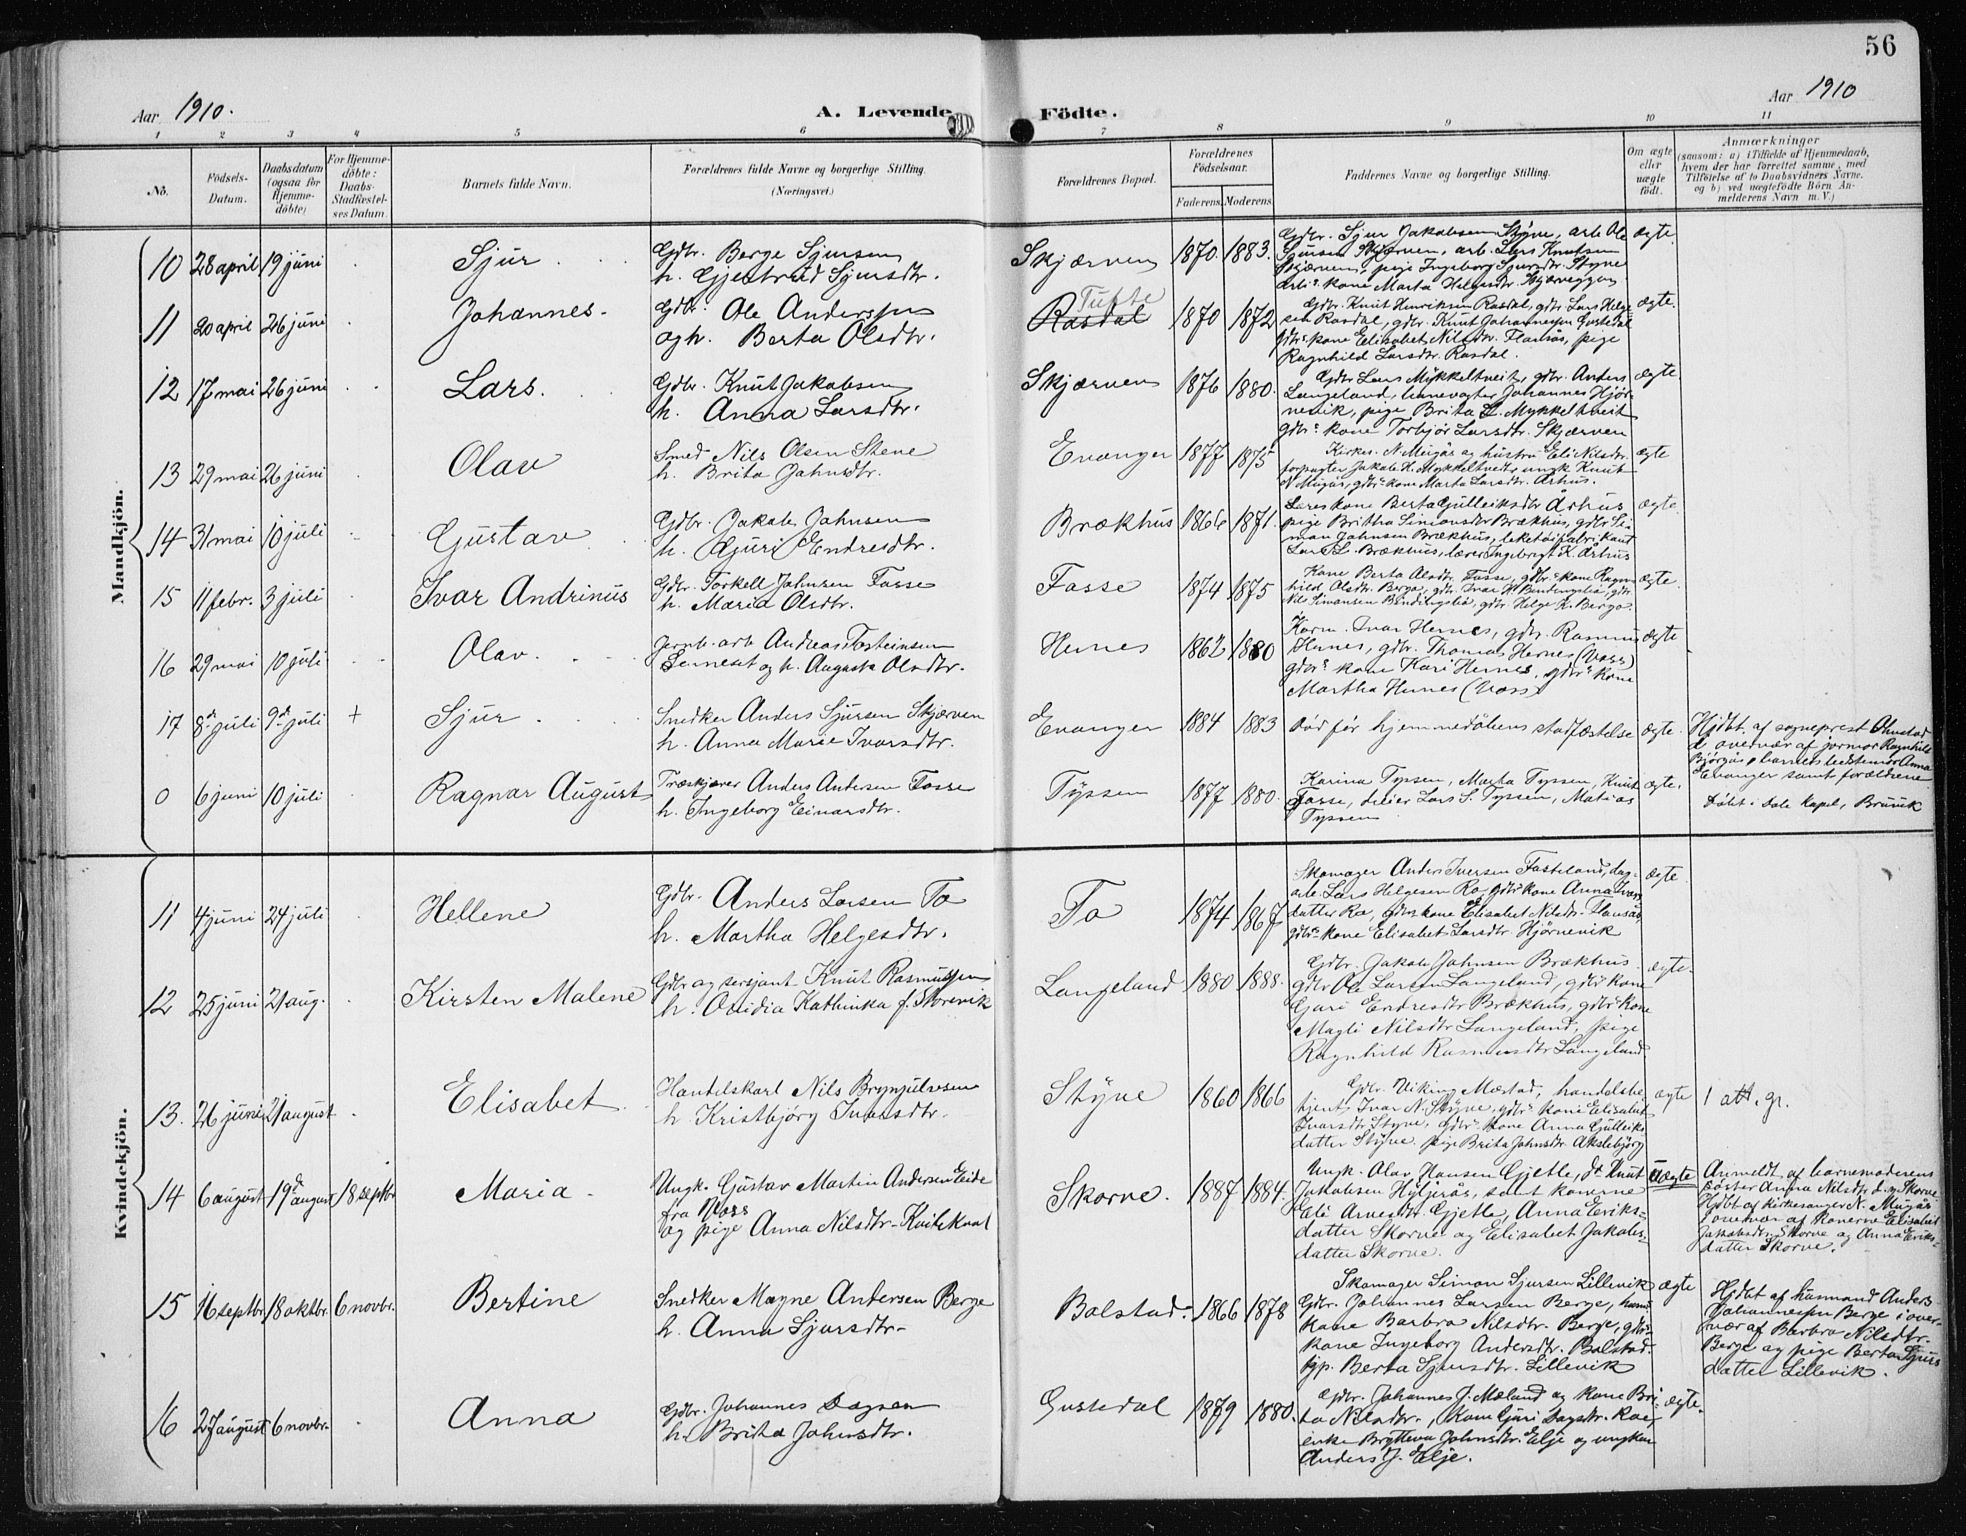 56
Aar 1910.
A. Levende Fødte.
Aar 1910
1 2 3 4 5 6 7 8 9 10 11
No.
Fødsels-Datum.
Daabsdatum (ogsaa for Hjemme-døbte)
For Hjemme-døbte: Daabs-Stadfæstel-ses Datum.
Barnets fulde Navn.
Forældrenes fulde Navne og borgerlige Stilling.
(Næringsvei.)
Forældrenes Bopæl.
Forældrenes Fødselsaar.
Faderens. Moderens.
Faddernes Navne og borgerlige Stilling.
Om ægte eller uægte født.
Anmærkninger
(saasom: a) i Tilfælde af Hjemmedaab,
hvem der har forrettet samme, med
Tilføielse af to Daabsvidners Navne.
og b) ved uægtefødte Børn An-
melderens Navn m. V.)
Mandkjøn.
10 28 april 19 juni Sjur
Gdbr. Berge Sjursen
h. Gjertrud Sjursdtr.
Skjærven 1870. 1883.
Gdbr. Sjur Jakobsen Styve, arb. Ole
Sjursen Skjærven, arb. Lars Knutsen
Skjærven, pige Ingeborg Sjursdtr. Styve
arb.s kone Marta Helgesdtr. Skjerveggen
ægte.
11 20 april 26 juni Johannes.
Gdbr. Ole Andersen
og h. Berta Olsdtr.
Tufte
Rasdal 1870 1872
Gdbr. Knut Henriksen Rasdal, gdbr. Lars Helge-
sen Rasdal, gdbr. Knut Johannesen Gustedal
gdbrs kone Elisabet Nilsdtr. Flansås, pige
Ragnhild Larsdtr. Rasdal.
ægte.
12 17 mai 26 juni Lars.
Gdbr. Knut Jakobsen
h. Anna Larsdtr.
Skjærven 1876 1880.
Gdbr Lars Mykkeltveit, gdbr. Anders
Langeland, banevogter Johannes Hjør-
nevik, pige Brita L. Mykkeltveit
gdbrs kone Torbjør Larsdtr. Skjærven
ægte.
13 29 mai 26 juni Olav
Smed Nils Olsen Stene
h. Brita Jahnsdtr.
Evanger 1877 1875
Kirkes. N. Mugås og hustru Eli Nilsdtr.
forpagter Jakob H. Mykkeltvedt, ungk Knut
N Mugås, gdbrs kone Marta Larsdtr. Århus.
ægte
14 31 mai 10 juli Gustav
Gdbr. Jakob Jahnsen
h. Gjuri Endresdtr.
Brækhus 1866 1871.
Lærers kone Berta Gulleiksdtr Århus
pige Britha Simonsdtr Brækhus, gdbr Si-
mon Jahnsen Brækhus, leketøifabrikant
Lars L. Brækhus, lærer Ingebrigt K. Århus
ægte.
15 11 febr. 3 juli Ivar Andrinus
Gdbr. Torkell Jahnsen Fosse
h. Maria Olsdtr.
Fosse 1874 1875
Kone Berta Olsdtr. Fosse, gdbrs kone Ragn-
hild Olsdtr. Berge, gdbr. Ivar K Bendingslid, gdbr
Nils Simonsen Bendingslid, gdbr. Helge K. Berge.
ægte.
16 29 mai 10 juli Olav.
Jernb. arb Andreas Tosteinsen
og h. Augusta Olsdtr.
Hernes 1862 1880
Korm. Ivar Hernes, gdbr. Rasmus
Hernes, gdbr. Thomas Hernes (Voss)
gdbrs kone Kari Hernes, gdbrs kone
Martha Hernes (Voss)
ægte
17 8de juli 9de juli + Sjur
Snedker Anders Sjursen Skjærven
h. Anna Marie Ivarsdtr.
Evanger 1884 1883
Død før hjemmedåbens stadfæstelse
ægte.
Hjdbt. af sogneprest Ohnstad
i overvær af jormor Ragnhild
Bjørgås og barnets bedstemor Anna
Evanger samt forældrene
0 6 juni 10 juli Ragnar August
Træskjærer Anders Andersen Fosse
h. Ingeborg Einarsdtr.
Tyssen 1877 1880.
Karina Tyssen, Marta Tyssen, Knut
Fosse, dreier Lars S. Tyssen, Matias
Tyssen
ægte.
Døbt i Dale kapel, Bruvik
Kvindekjøn.
11 4 juni 24 juli Hellene
Gdbr. Anders Larsen To
h. Martha Helgesdtr.
To 1874 1867
Skomager Anders Iversen Fadnland, dag-
arb. Lars Helgesen Ro, gdbrs kone Anna Ivars
datter Ro, gdbrs kone Elisabet Nilsdtr. Flansås,
gdbrs kone Elisabet Larsdtr Hjørnevik
ægte.
12 25 juni 21 aug. Kirsten Malene
Gdbr og sersjant Knut Rasmussen
h. Ovidia Kathinka f. Storevik
Langeland 1880 1888.
Gdbr. Jakob Jahnsen Brækhus.
gdbr Ole Larsen Langeland, gdbrs kone
Gjuri Endresdtr Brækhus, gdbrs kone
Magli Nilsdtr Langeland, pige
Ragnhild Rasmusdtr Langeland.
ægte.
13. 26 juni 21 august Elisabet
Handelskarl Nils Brynjulvsen
h Kristbjørg Ivarsdtr.
Styve 1860 1866
Gdbr. Viking Mæstad, handelsbe-
tjent Ivar N. Styve, gdbrs kone Elisabet
Ivarsdtr Styve, gdbrs kone Anna Gulleiks
datter Styve. pige Brita Johnsdtr Akslebjørg
ægte
1 att. gr.
14 6 august 19de august 18 septbr Maria
Ungk. Gustav Martin Andersen Eide
fra Voss
og pige Anna Nilsdtr. Kvilekval
Skorve. 1887 1884.
Ungk. Olav Hansen Gjetle, do Knut
Jakobsen Hyljrås, samt konerne
Eli Arnesdtr. Gjetle, Anna Eriks-
datter Skorve og Elisabet Jakobs-
datter Skorve.
Uægte
Anmeldt af barnemoderens
søster Anna Nilsdtr. Skorve.
Hjdbt af kirkesanger N. Mugås
i overvær af konerne Elisabet
Jakobsdtr. Skorve og Anna Eriks-
datter Skorve.
15 16 septbr. 18 oktbr. 6 novbr. Bertine
Snedker Magne Andersen Berge
h. Anna Sjursdtr.
Bolstad. 1866 1878
Skomager Simon Sjursen Lillevik
Gdbr. Johannes Larsen Berge, husm.
kone Barbra Nilsdtr. Berge, gdbrs-
kone Ingeborg Andersdtr. Bolstad.
tjp. Berta Sjursdtr. Lillevik
ægte
Hjdbt af husmand Anders
Johannesen Berge i over-
vær af Barbra Nilsdtr.
Berge og pige Berta Sjurs
datter Lillevik.
16 27 august 6 novbr. Anna
Gdbr. Johannes Dagsen
h. Brita Johnsdtr.
Gustedal 1879 1880.
Gdbr. Johannes J. Mæland og kone Bri-
ta Nilsdtr., kone Gjuri Dagsdtr. Ro,
enke Bryteva Johnsdtr. Elje og ungkar
Anders J. Elje.
ægte.